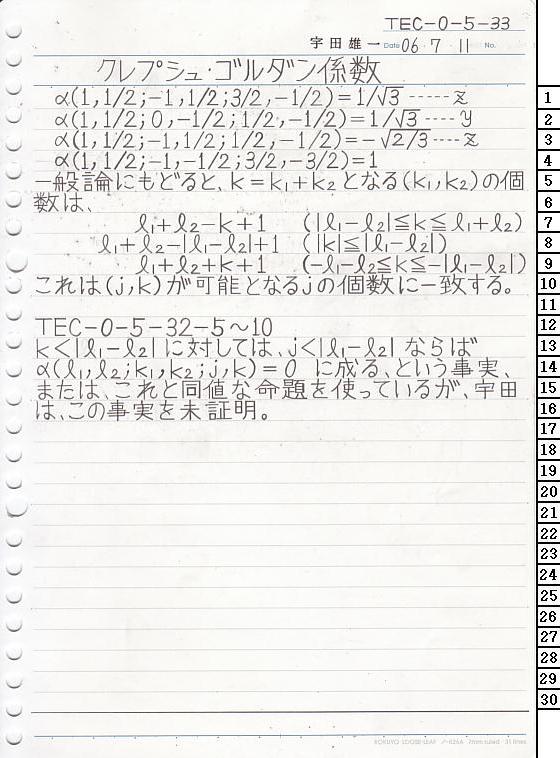 TEC-0-5-33
宇田雄一 Date 06 7 11 No.
クレプシュ・ゴルダン係数
α(1,1/2;-1,1/2;3/2,-1/2)=1/√3 ----- z
α(1,1/2;0,-1/2;1/2,-1/2)=1/√3 ---- y
α(1,1/2;-1,1/2;1/2,-1/2)=-√2/3 ---- z
α(1,1/2;-1,-1/2;3/2,-3/2)=1
一般論にもどると、k=k₁+k₂となる(k₁,k₂)の個
数は、
ℓ₁+ℓ₂-k+1 (|ℓ₁-ℓ₂|≦k≦ℓ₁+ℓ₂)
ℓ₁+ℓ₂-|ℓ₁-ℓ₂|+1 (|k|≦|ℓ₁-ℓ₂|)
ℓ₁+ℓ₂+k+1 (-ℓ₁-ℓ₂≦k≦-|ℓ₁-ℓ₂|)
これは(j,k)が可能となるjの個数に一致する。
TEC-0-5-32-5~10
k<|ℓ₁-ℓ₂|に対しては、j<|ℓ₁-ℓ₂|ならば
α(ℓ₁,ℓ₂;k₁,k₂;j,k)=0 に成る、という事実、
または、これと同値な命題を使っているが、宇田
は、この事実を未証明。
1
2
3
4
5
6
7
8
9
10
11
12
13
14
15
16
17
18
19
20
21
22
23
24
25
26
27
28
29
30
KOKUYO LOOSE-LEAF ノ-826A 7mm ruled 31 lines